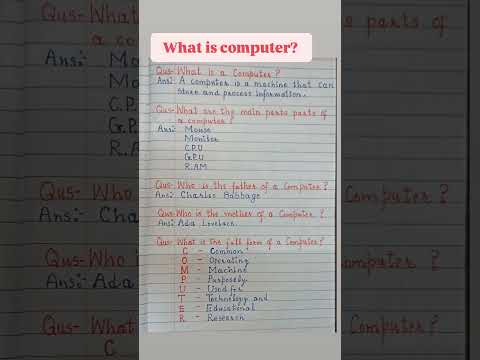 What is computer?
Qus-What is a Computer?
Ans:- A computer is a machine that can
store and process information.
Qus-What are the main parts parts of
a computer?
Ans:- Mouse
Monitor
C.P.U
G.P.U
R.A.M
Qus-Who is the father of a Computer?
Ans:- Charles Babbage
Qus-Who is the mother of a Computer?
Ans:- Ada Lovelace.
Qus- What is the full form of a Computer?
C - Common
O - Operating
M - Machine
P - Purposely
U - Used for
T - Technology and
E - Educational
R - Research